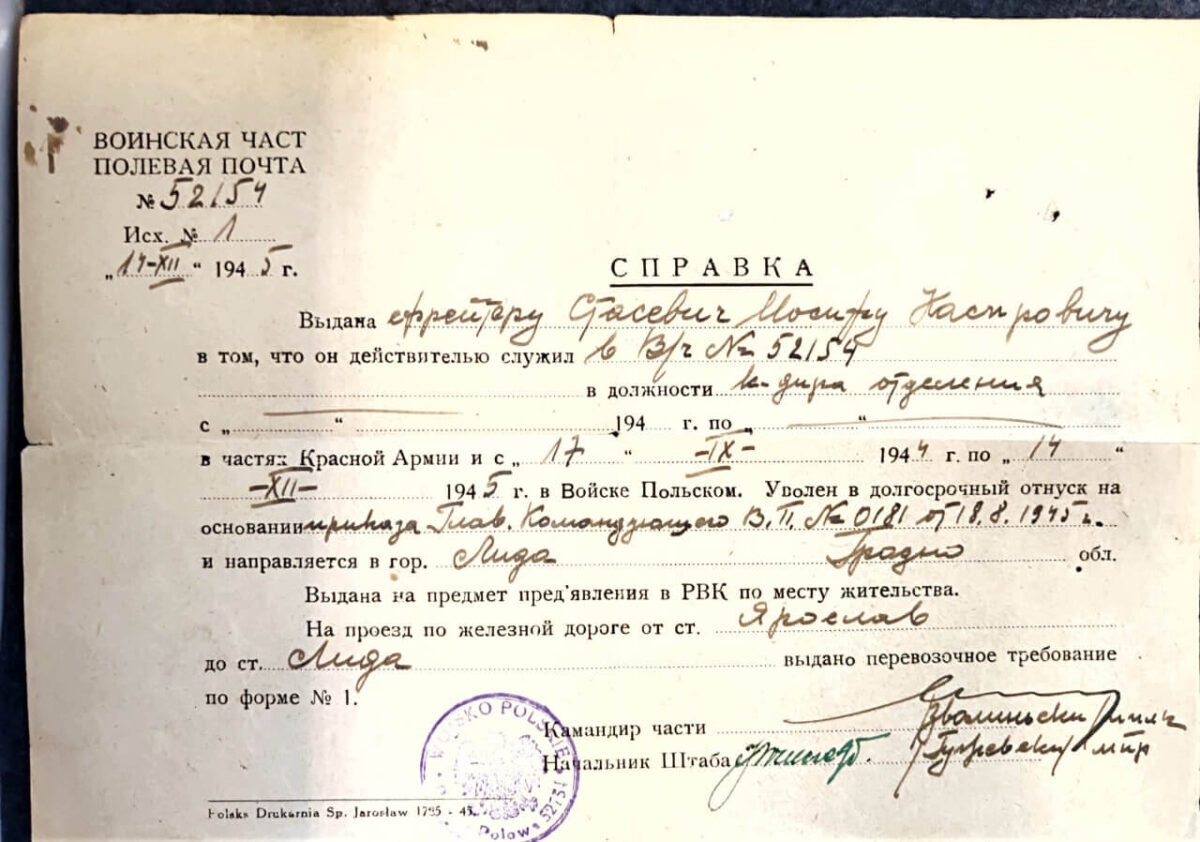 ВОИНСКАЯ ЧАСТ
ПОЛЕВАЯ ПОЧТА
№ 52154
Исх. № 1
„14-XII“ 1945 г.
СПРАВКА
Выдана ефрейтеру Стасевич Иосифу Каспровичу
в том, что он действителью служил в В/ч № 52154
в должности к-дира отделения
с „ “ 194 г. по „ “
в частях Красной Армии и с „ 17 “ -IX- 1944 г. по „ 14 “
-XII- 1945 г. в Войске Польском. Уволен в долгосрочный отнуск на
основании приказа Глав. Командующего В.П. № 0181 от 18.8.1945 г.
и направляется в гор. Лида Гродно обл.
Выдана на предмет пред'явления в РВК по месту жительства.
На проезд по железной дороге от ст. Ярослав
до ст. Лида выдано перевозочное требование
по форме № 1.
Камандир части
Начальник Штаба
WOJSKO POLSKIE
Polow 52154
Polska Drukarnia Sp. Jarosław 1795 - 45